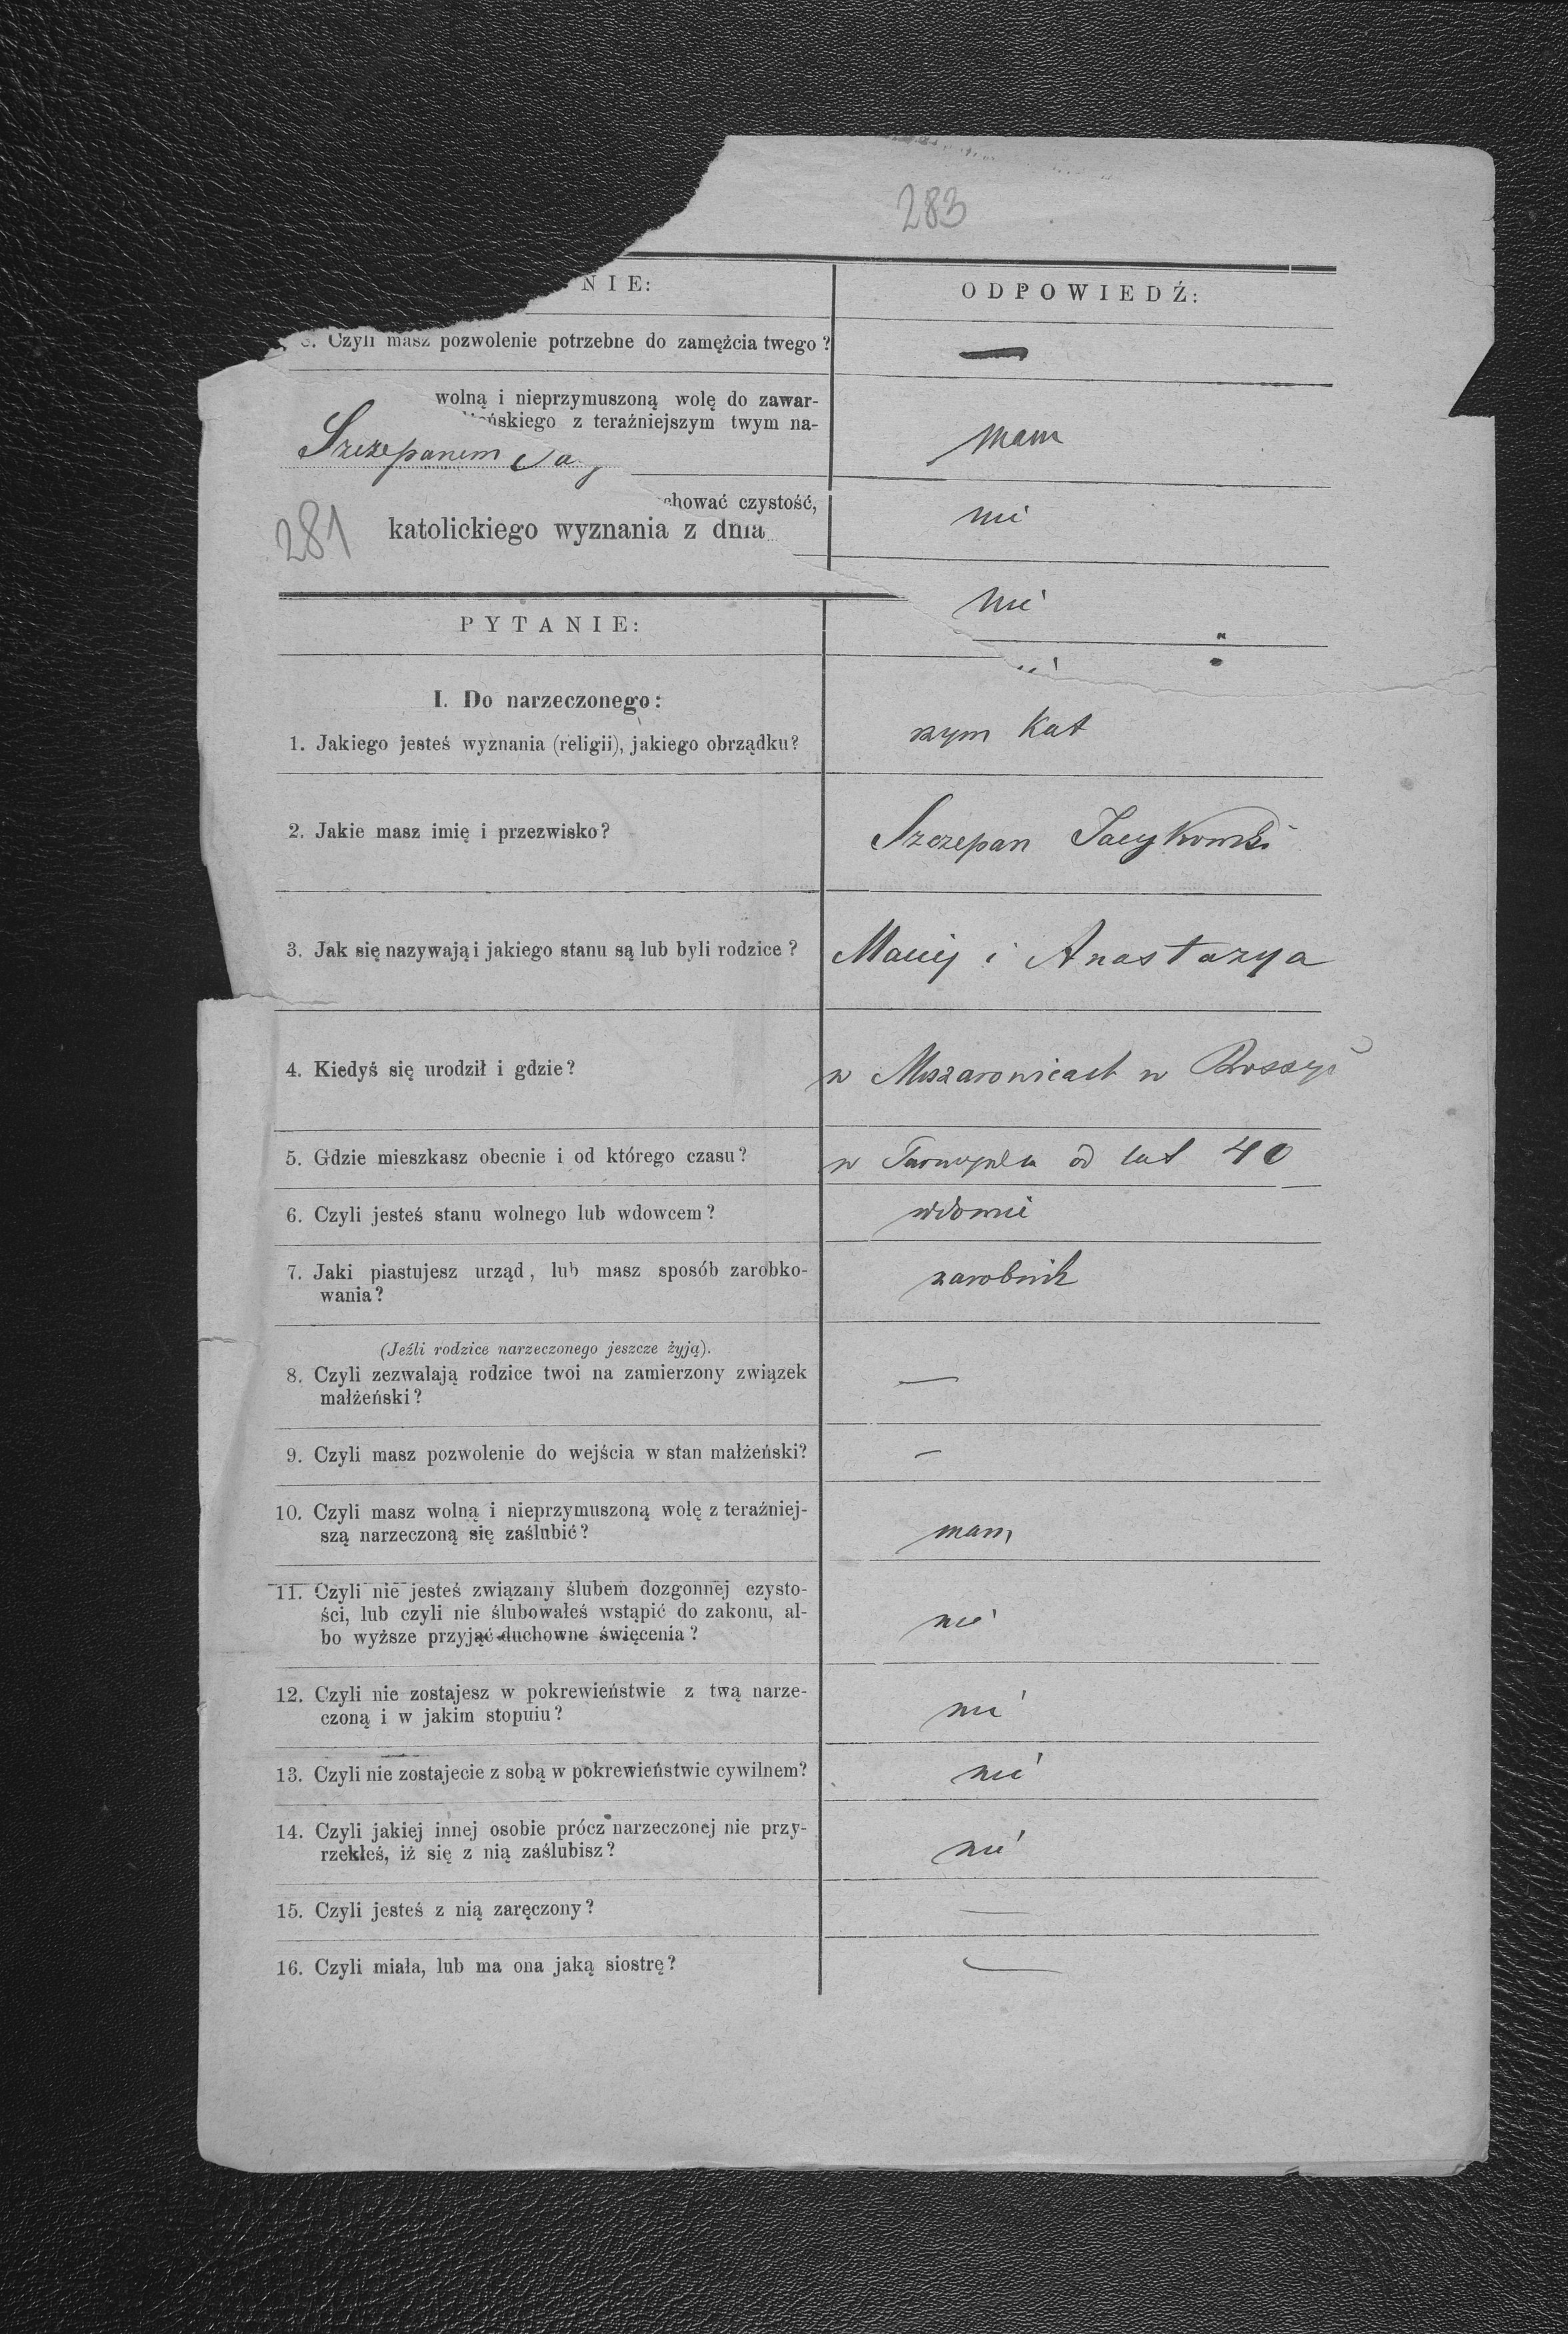 283
NIE:
ODPOWIEDŹ:
Czyli masz pozwolenie potrzebne do zamężcia twego?
—
wolną i nieprzymuszoną wolę do zawar-
skiego z teraźniejszym twym na-
mam
Szczepanem Ja
chować czystość,
nie
281
katolickiego wyznania z dnia
nie
PYTANIE:
I. Do narzeczonego:
1. Jakiego jesteś wyznania (religii), jakiego obrządku?
rzym Kat
2. Jakie masz imię i przezwisko?
Szczepan Jacykowski
3. Jak się nazywają i jakiego stanu są lub byli rodzice?
Maciej i Anastazya
4. Kiedyś się urodził i gdzie?
w w Rossyi
5. Gdzie mieszkasz obecnie i od którego czasu?
w Tarnopolu od lat 40
6. Czyli jesteś stanu wolnego lub wdowcem?
7. Jaki piastujesz urząd, lub masz sposób zarobko-
wania?
zarobnik
(Jeźli rodzice narzeczonego jeszcze żyją).
8. Czyli zezwalają rodzice twoi na zamierzony związek
małżeński?
—
9. Czyli masz pozwolenie do wejścia w stan małżeński?
—
10. Czyli masz wolną i nieprzymuszoną wolę z teraźniej-
szą narzeczoną się zaślubić?
mam
11. Czyli nie jesteś związany ślubem dozgonnej czysto-
ści, lub czyli nie ślubowałeś wstąpić do zakonu, al-
bo wyższe przyjąć duchowne święcenia?
nie
12. Czyli nie zostajesz w pokrewieństwie z twą narze-
czoną i w jakim stopuiu?
nie
13. Czyli nie zostajecie z sobą w pokrewieństwie cywilnem?
nie
14. Czyli jakiej innej osobie prócz narzeczonej nie przy-
rzekłeś, iż się z nią zaślubisz?
nie
15. Czyli jesteś z nią zaręczony?
—
16. Czyli miała, lub ma ona jaką siostrę?
—